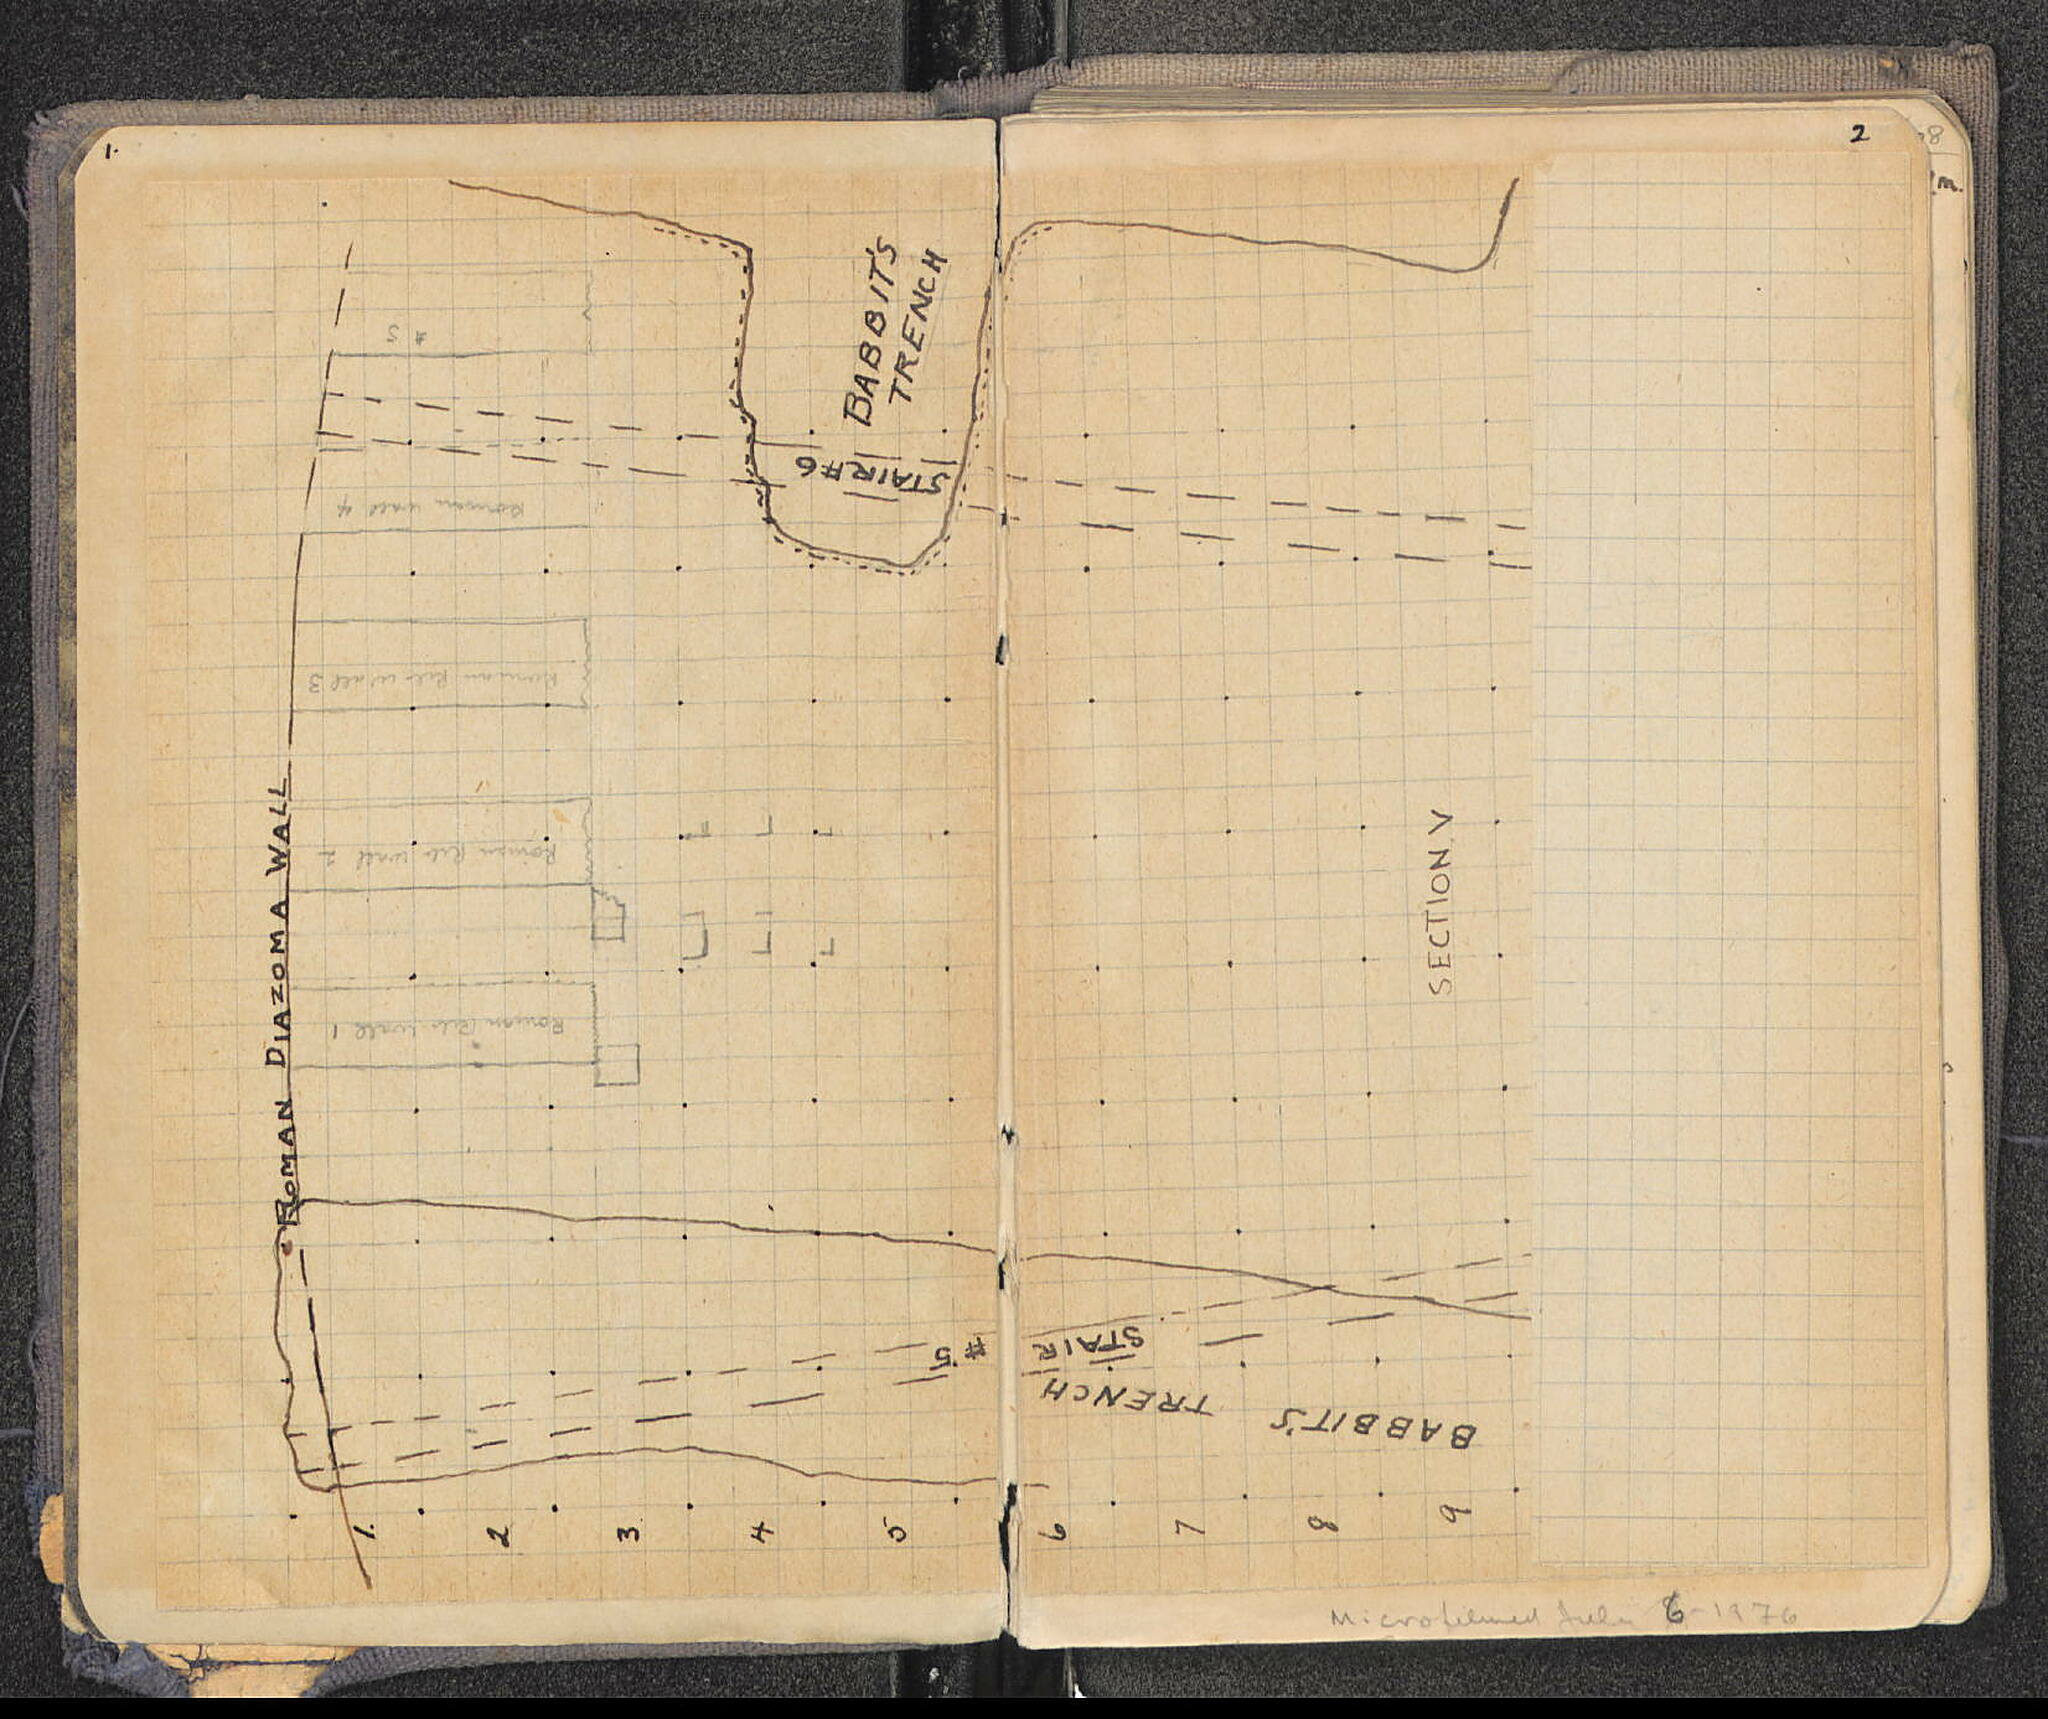 1.
2
BABBIT'S
TRENCH
STAIR #6
# 5
Roman wall 4
Roman Rib Wall 3
Roman Rib Wall 2
Roman Rib Wall 1
ROMAN DIAZOMA WALL
SECTION V
STAIR
# 5
BABBIT'S TRENCH
1. 2 3 4 5 6 7 8 9
Microfilmed July 6-1976